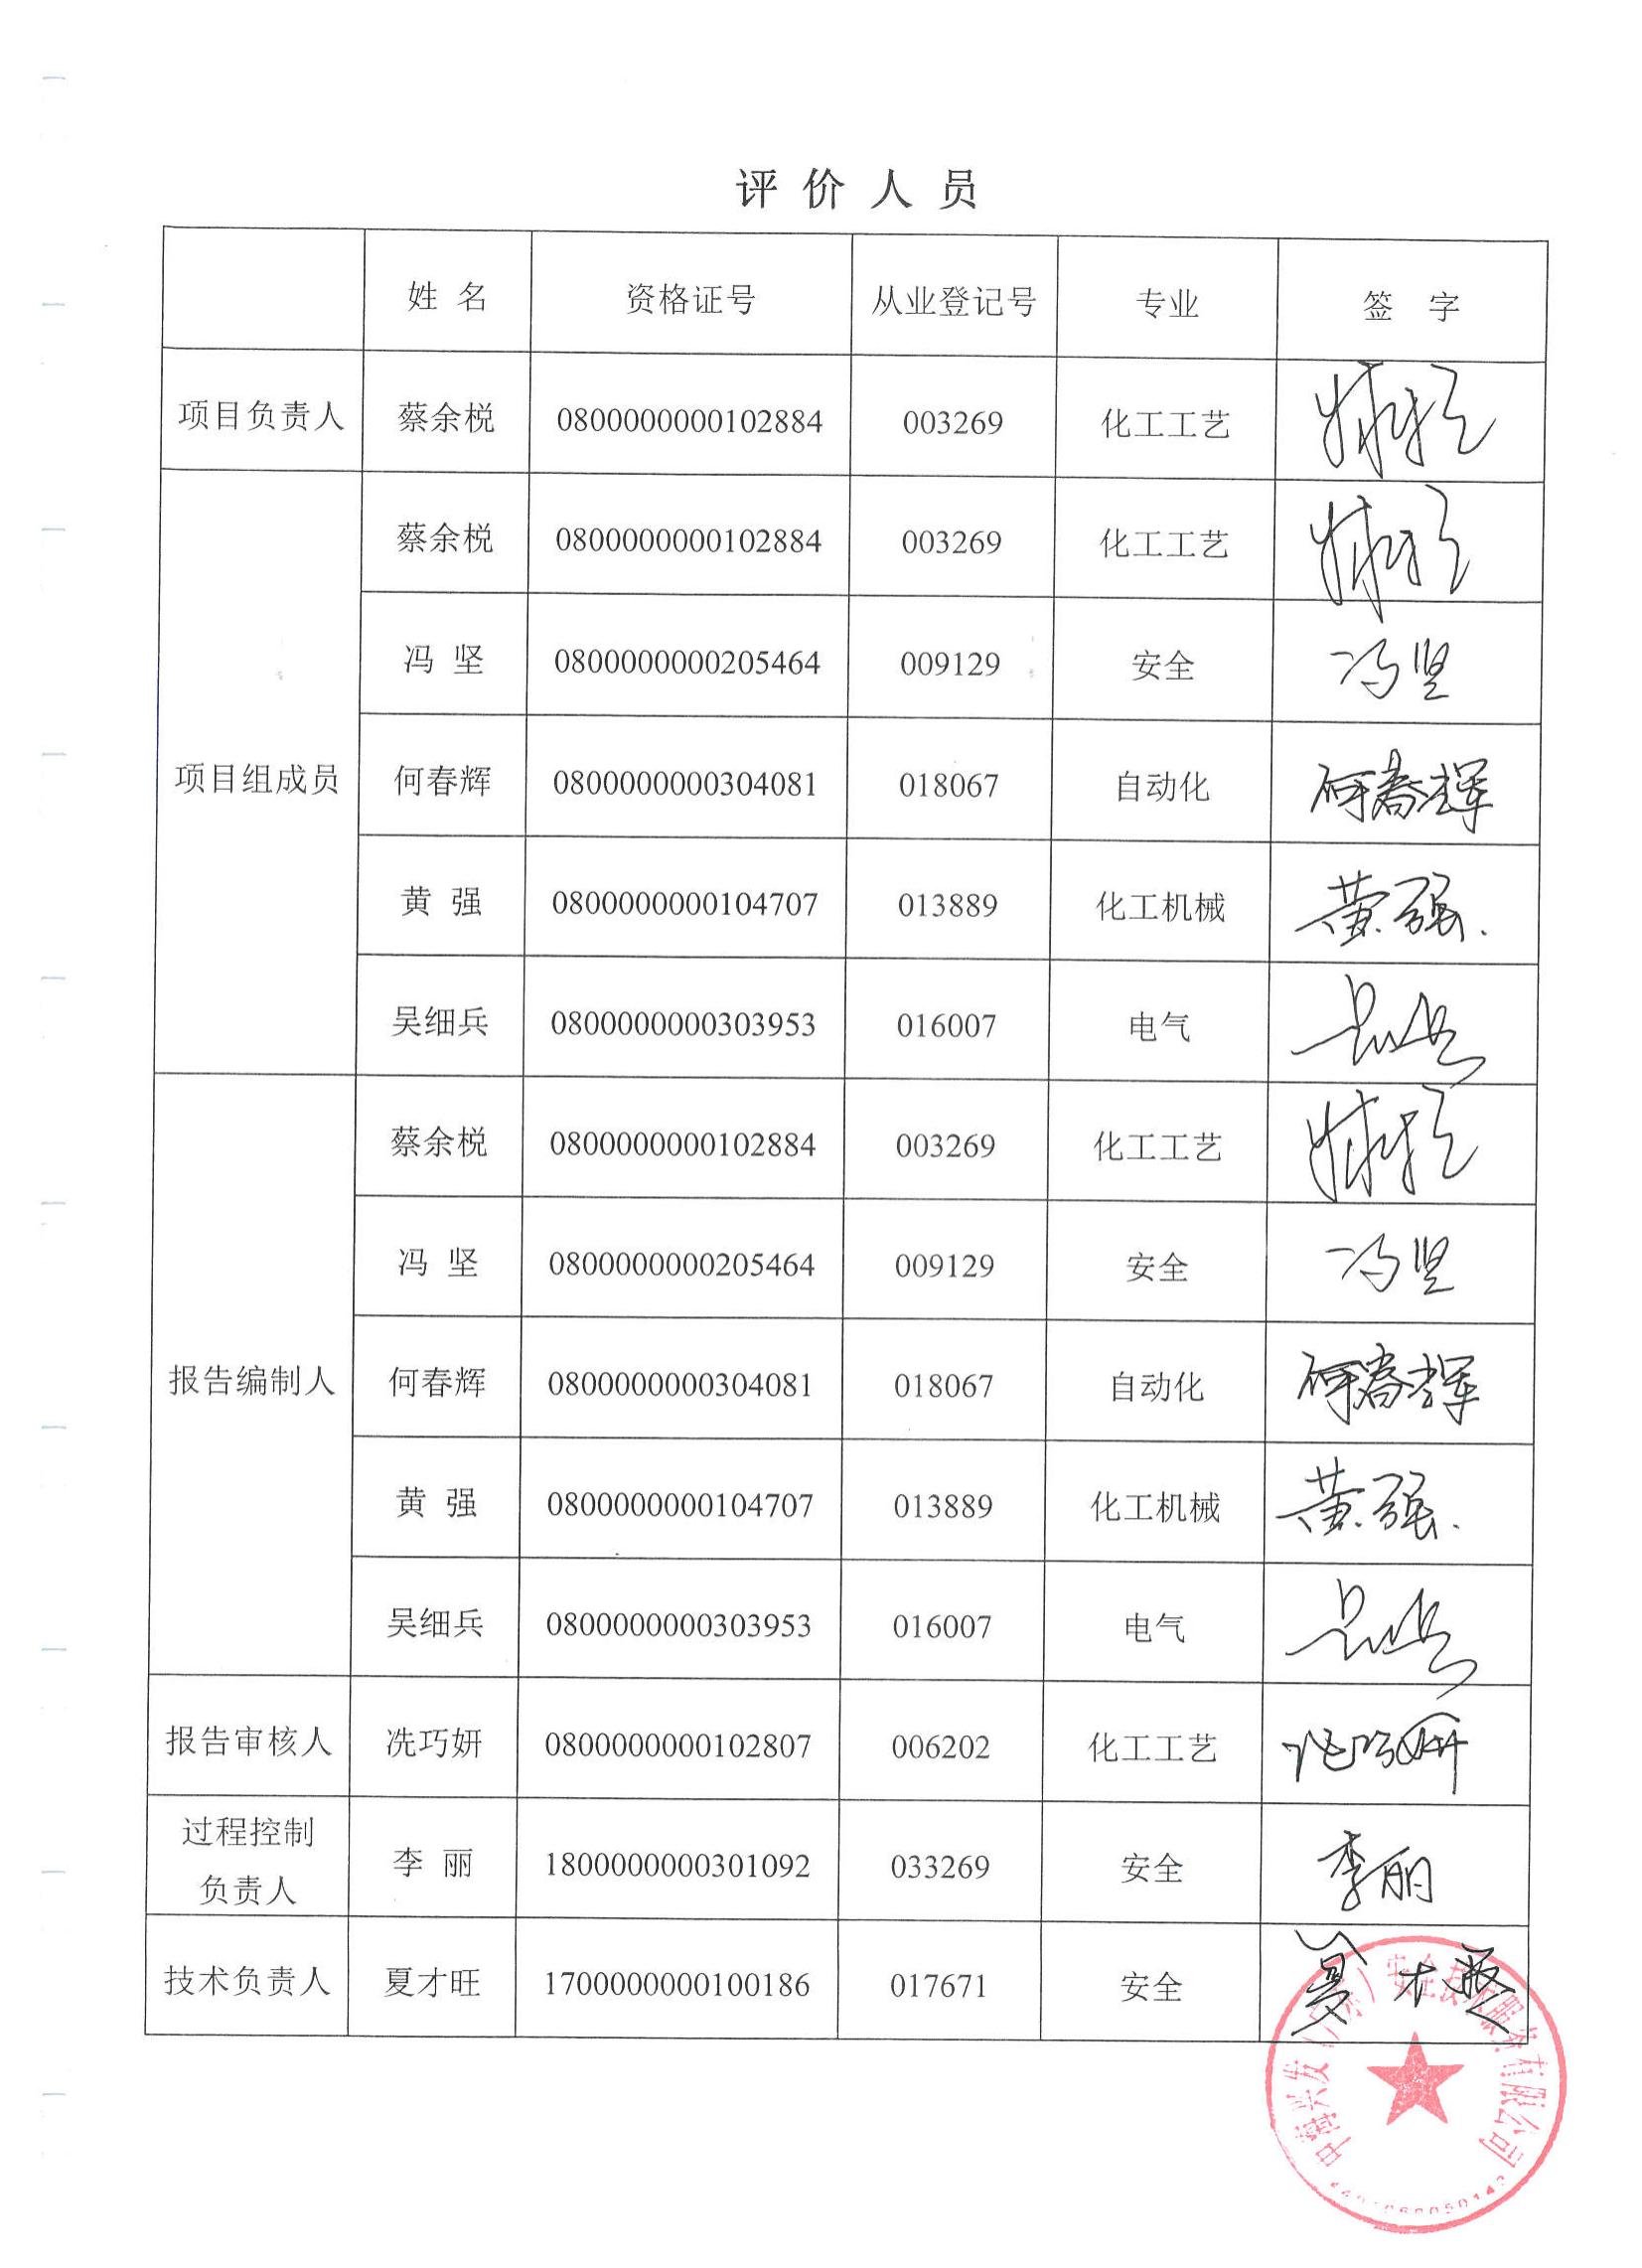 评价人员
姓 名 资格证号 从业登记号 专业 签 字
项目负责人 蔡余棁 0800000000102884 003269 化工工艺
项目组成员 蔡余棁 0800000000102884 003269 化工工艺
冯 坚 0800000000205464 009129 安全 冯坚
何春辉 0800000000304081 018067 自动化 何春辉
黄 强 0800000000104707 013889 化工机械 黄强.
吴细兵 0800000000303953 016007 电气
报告编制人 蔡余棁 0800000000102884 003269 化工工艺
冯 坚 0800000000205464 009129 安全 冯坚
何春辉 0800000000304081 018067 自动化 何春辉
黄 强 0800000000104707 013889 化工机械 黄强.
吴细兵 0800000000303953 016007 电气
报告审核人 冼巧妍 0800000000102807 006202 化工工艺 冼巧妍
过程控制
负责人 李 丽 1800000000301092 033269 安全 李丽
技术负责人 夏才旺 1700000000100186 017671 安全 夏才旺
安全技术服务有限公司